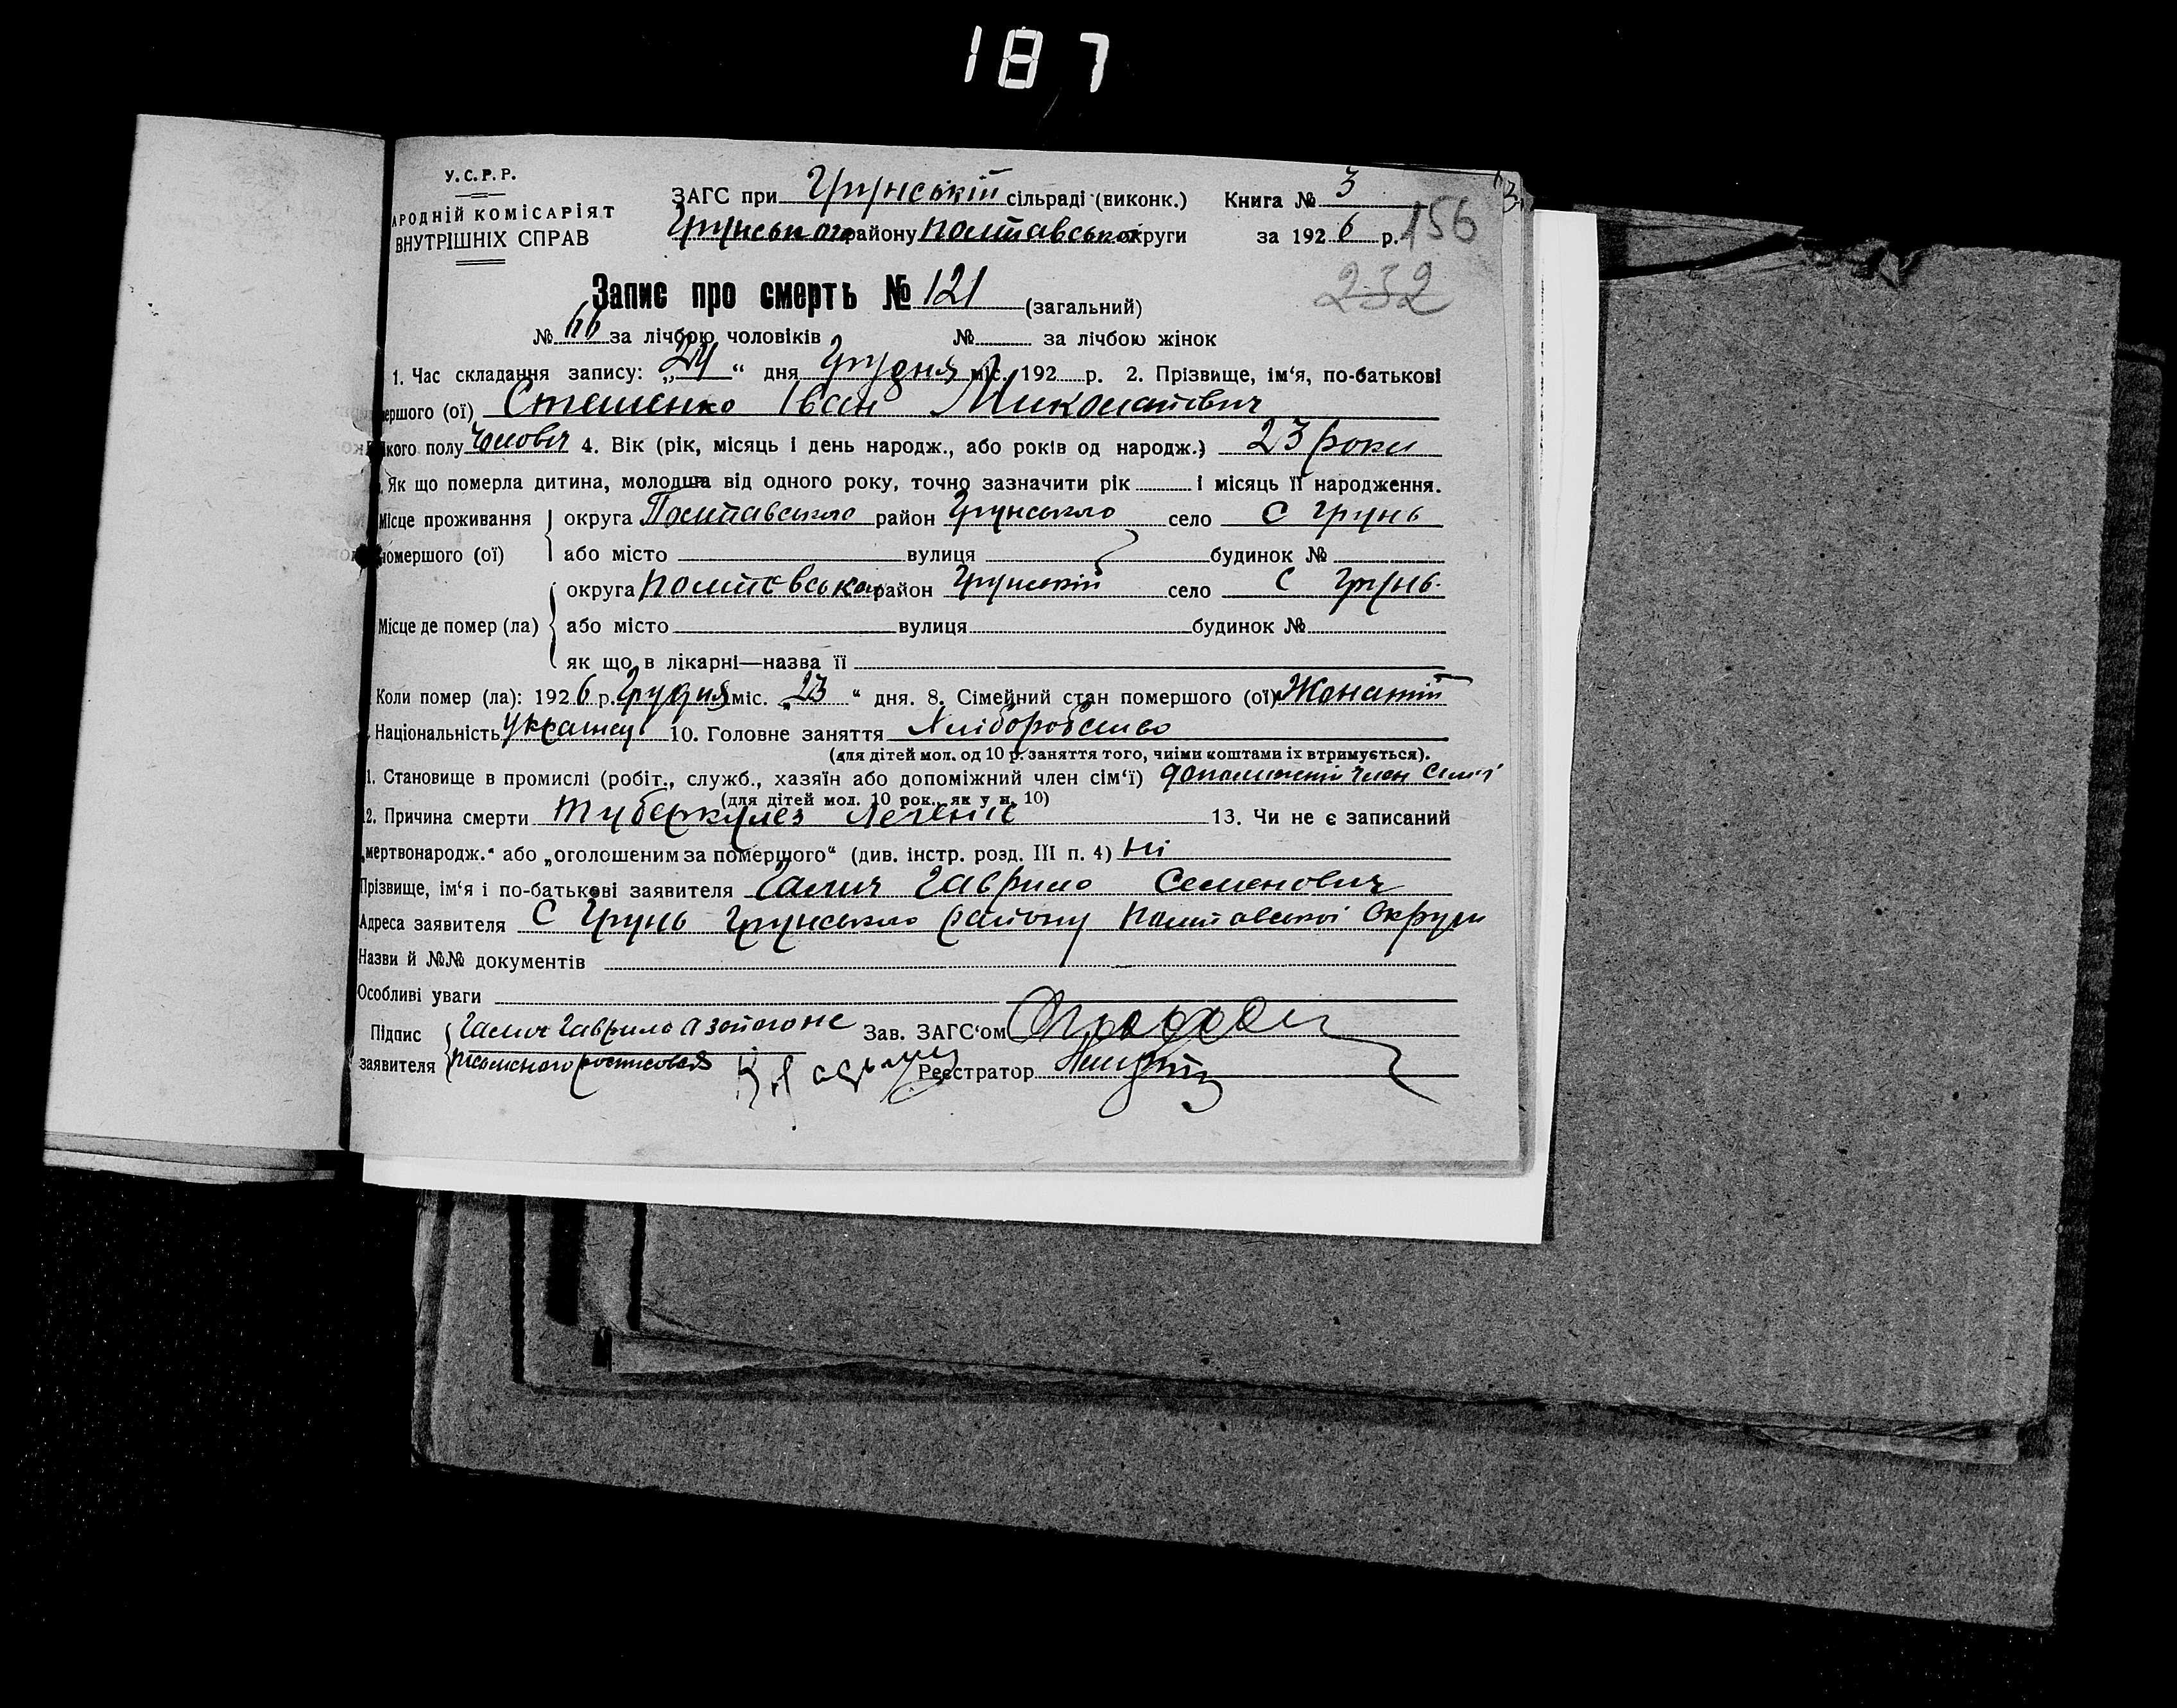 187
У.С.Р.Р.
АРОДНІЙ КОМІСАРІЯТ
ВНУТРІШНІХ СПРАВ
ЗАГС при Грунській сільраді (виконк.) Книга № 3
Грунського району Полтавської округи за 1926 р. 156
232
Запис про смерть № 121 (загальний)
№ 66 за лічбою чоловіків № за лічбою жінок
1. Час складання запису: „24“ дня Грудня міс. 192 р. 2. Прізвище, ім‘я, по-батькові
мершого (ої) Стешенко Іван Миколайович
якого полу Чоловіч 4. Вік (рік, місяць і день народж., або років од народж.) 23 роки
Як що померла дитина, молодша від одного року, точно зазначити рік і місяць її народження.
Місце проживання округа Полтавського район Грунського село С Грунь
помершого (ої) або місто вулиця будинок №
округа Полтавська район Грунській село С Грунь.
Місце де помер (ла) або місто вулиця будинок №
як що в лікарні—назва її
Коли помер (ла): 1926 р. Грудня міс. „23“ дня. 8. Сімейний стан помершого (ої) Жонатий
Національність Українец 10. Головне заняття Хліборобство
(для дітей мол. од 10 р. заняття того, чиїми коштами їх втримується).
1. Становище в промислі (робіт., служб., хазяїн або допоміжний член сім‘ї) допоміжний член Сем'ї
(для дітей мол. 10 рок., як у п. 10)
12. Причина смерти Туберкульоз Легенів 13. Чи не є записаний
„мертвонародж.“ або „оголошеним за помершого“ (див. інстр. розд. III п. 4) Ні
Прізвище, ім‘я і по-батькові заявителя Галич Гаврило Семенович
Адреса заявителя С Грунь Грунського району Полтавської Округи
Назви й №№ документів
Особливі уваги
Підпис Галич Гаврило а за його не Зав. ЗАГС‘ом
заявителя письменого росписовся Реєстратор